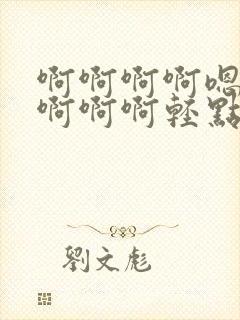 啊啊啊啊嗯
啊啊啊輕點
劉文彪